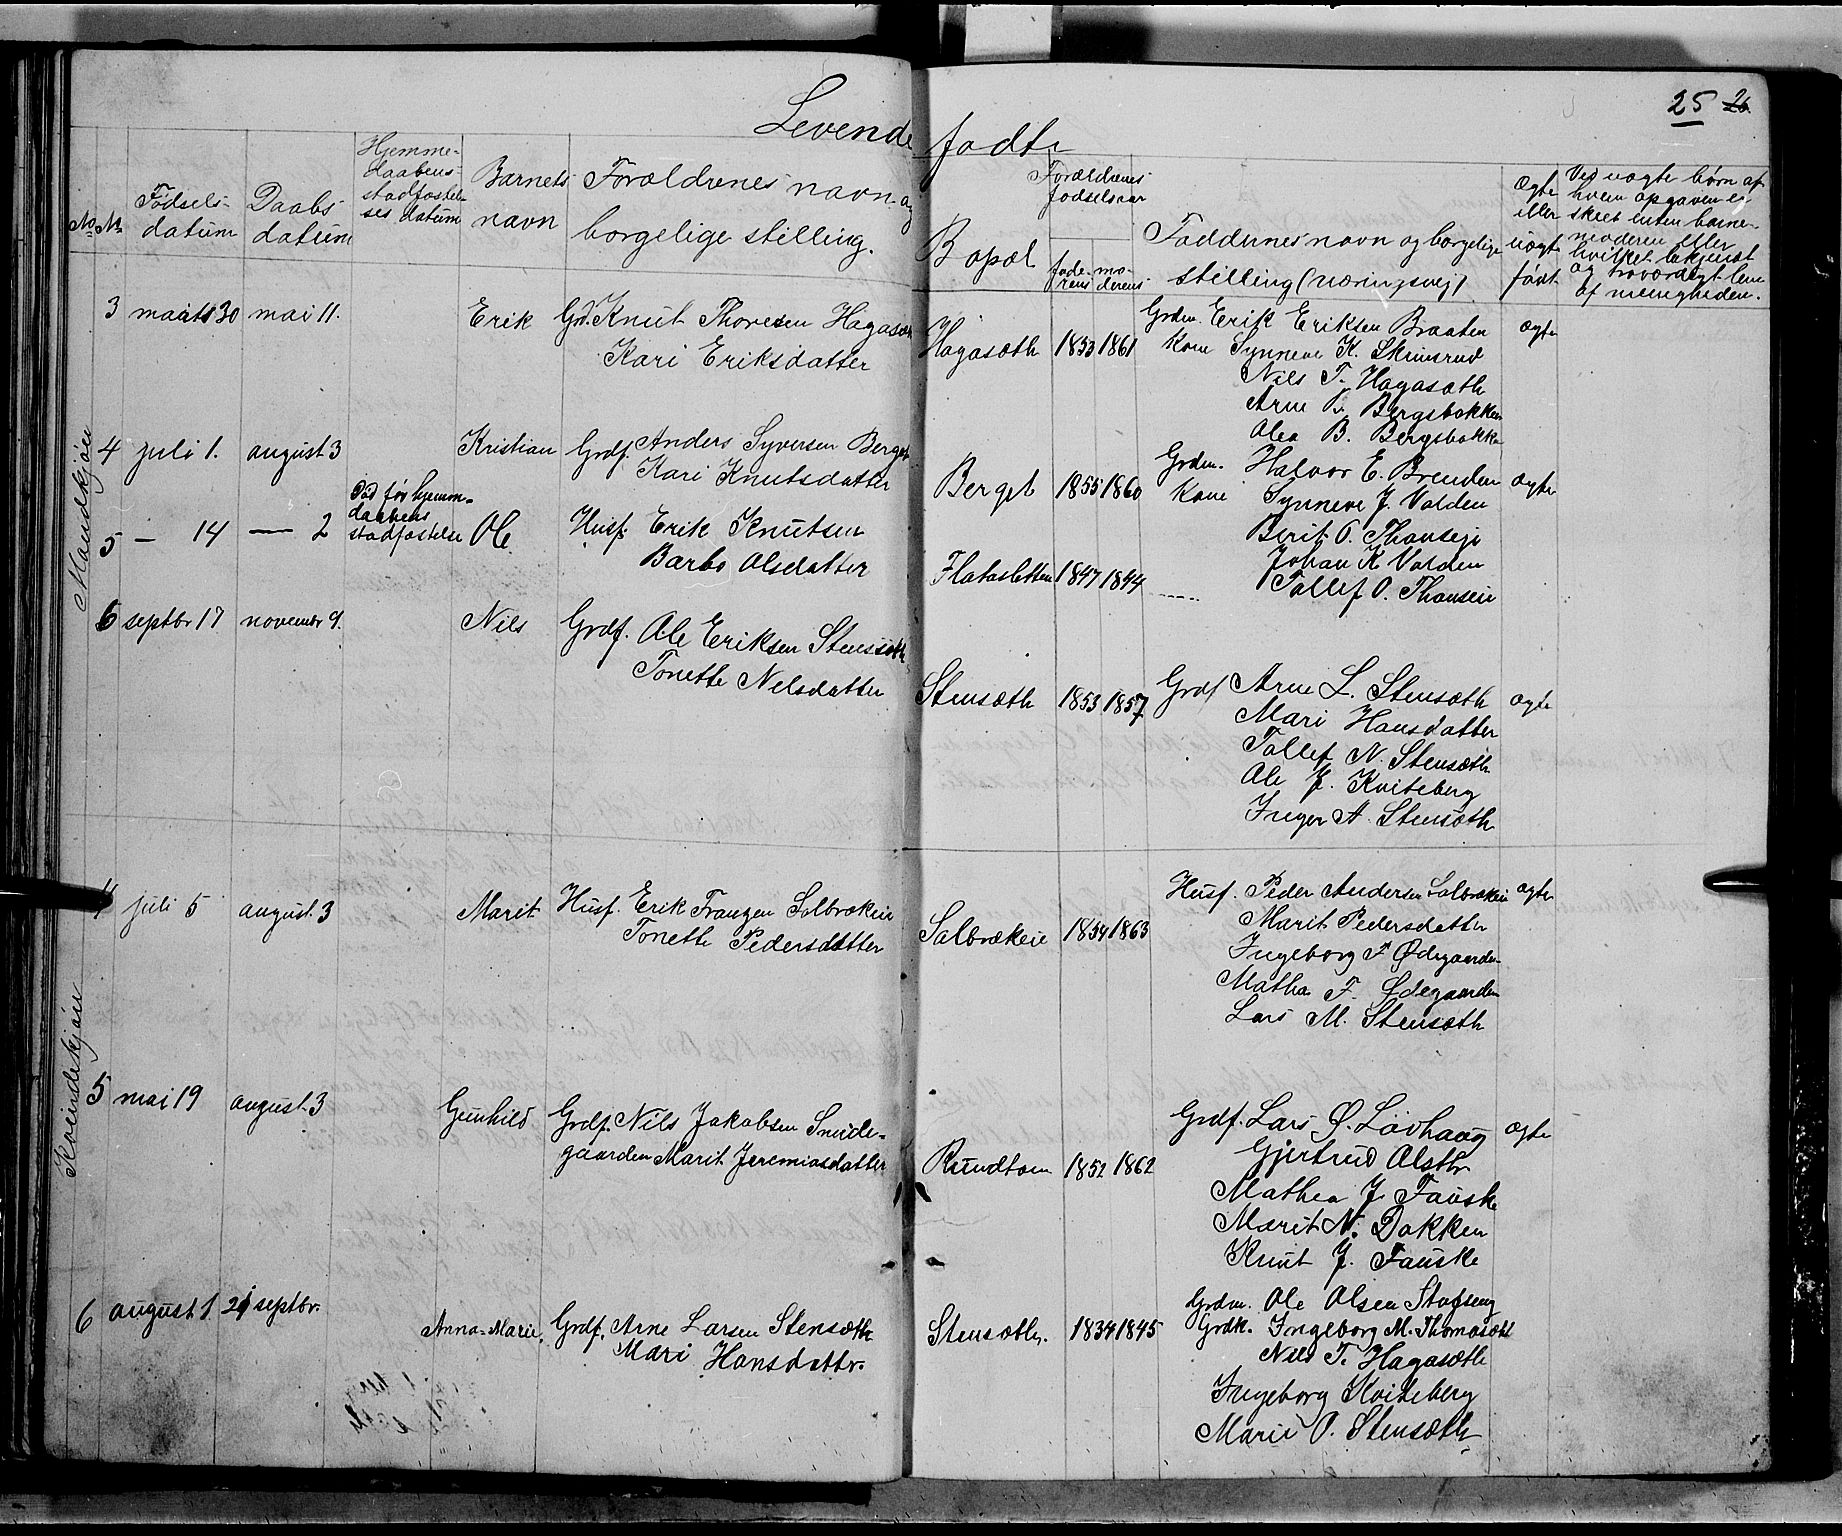 Levende fødte
25 26
No No
Fødsels-
datum
Daabs-
datum
Hjemme-
daabens
stadfæstel-
ses datum
Barnets
navn
Forældrenes navn og
borgelige stilling.
Bopæl
Forældrenes
fødselsaar
fade-
rens
mo-
derens
Faddernes navn og borgelige
stilling (næringsvej)
Ægte
eller
uægte
født
Ved uægte børn af
hvem opgaven er
skeet enten barne-
moderen eller
hvilket bekjendt
og troværdigt lem
af menigheden.
Mandkjøn
3 maits 30 mai 11. Erik Grd. Knut Thoresen Hagasæth
Kari Eriksdatter
Hagasæth 1853 1861 Grdm. Erik Eriksen Braaten ægte
Kone Synneve K. Skinsrud
Nils T. Hagasæth
Arne B. Bergsbakken
Olea B. Bergsbakke
4 juli 1. august 3 Kristian Grdf. Anders Syversen Berget
Kari Knutsdatter
Berget 1855 1860 Grdm. Halvor E. Brenden ægte
Kone Synneve J. Volden
Berit O. Thonseje
Johan K Volden
Tollef O. Thonseie
5 — 14 — 2 Død før hjemm-
daabens
stadfæstelse Ole Husf. Erik Knutsen
Barbo Olsdatter
Flatasletten 1847 1844
6 septbr 17 novembr 9. Nils Grdf. Ole Eriksen Stensæth
Tonette Nelsdatter
Stensæth 1853 1857 Grdf Arne L. Stensæth ægte
Mari Hansdatter
Tollef N. Stensæth
Ole J. Kviteberg
Inger A. Stensæth
Kvindekjøn
4 juli 5 august 3 Marit Husf. Erik Franzen Solbrækeie
Tonette Pedersdatter
Solbrækeie 1854 1863 Husf. Peder Andersen Solbrækeie ægte
Marit Pedersdatter
Ingeborg F Ødegaarden
Mathea F. Ødegaarden
Lars M. Stensæth
5 mai 19 august 3 Gunhild Grdf. Nils Jakobsen Smide-
gaarden Marit Jeremiasdatter
Rundtom 1852 1862 Grdf. Lars Ø. Løvhaug ægte
Gjertrud Olsdtr
Mathea J. Fauske
Marit N. Dokken
Knut J. Fauske
6 august 1 21 septbr. Anna-Marie. Grdf. Arne Larsen Stensæth
Mari Hansdattr.
Stensæth. 1834 1845 Grdm. Ole Olsen Stafseng
Grdk. Ingeborg M. Thomasæt
Nils T. Hagasæth
Ingeborg Kviteberg
Marie O. Stensæth